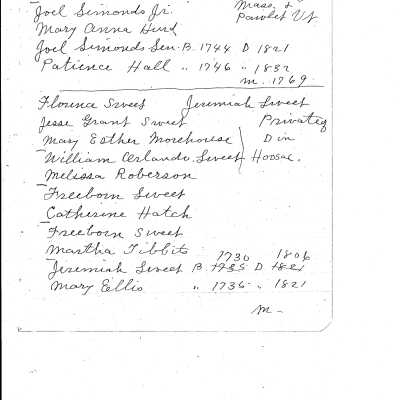 Mass. &
Joel Simonds Jr.
Pawlet Vt
Mary Anna Herd
Joel Simonds Sen. B. 1744 D 1821
Patience Hall " 1746 " 1832
m. 1769.
Florence Sweet Jeremiah Sweet
Jesse Grant Sweet Privateq
Mary Esther Morehouse D in
William Orlando Sweet Hoosac.
Melissa Roberson
Freeborn Sweet
Catherine Hatch
Freeborn Sweet
Martha Tibbits 1730 1806
Jeremiah Sweet B. 1735 D 1821
Mary Eellis " 1736 " 1821
m -